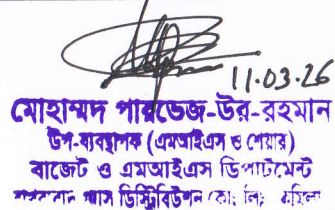 11.03.26
মোহাম্মদ পারভেজ-উর-রহমান
উপ-ব্যবস্থাপক (এমআইএস ও শেয়ার)
বাজেট ও এমআইএস ডিপার্টমেন্ট
গ্যাস ডিস্ট্রিবিউশন কোঃ লিঃ